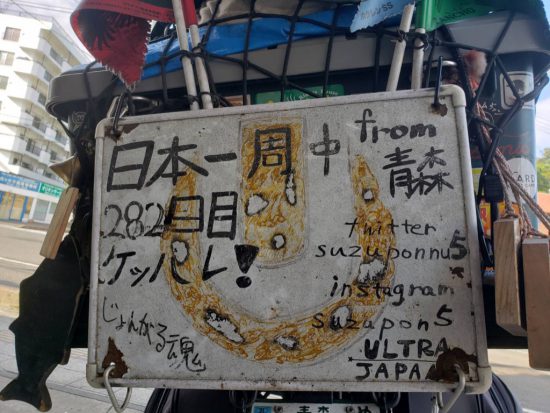 日本一周中
from
青森
282日目
ケッパレ!
じょんがる魂
twitter
suzuponnu5
instagram
suzupon5
ULTRA
JAPAN
青森